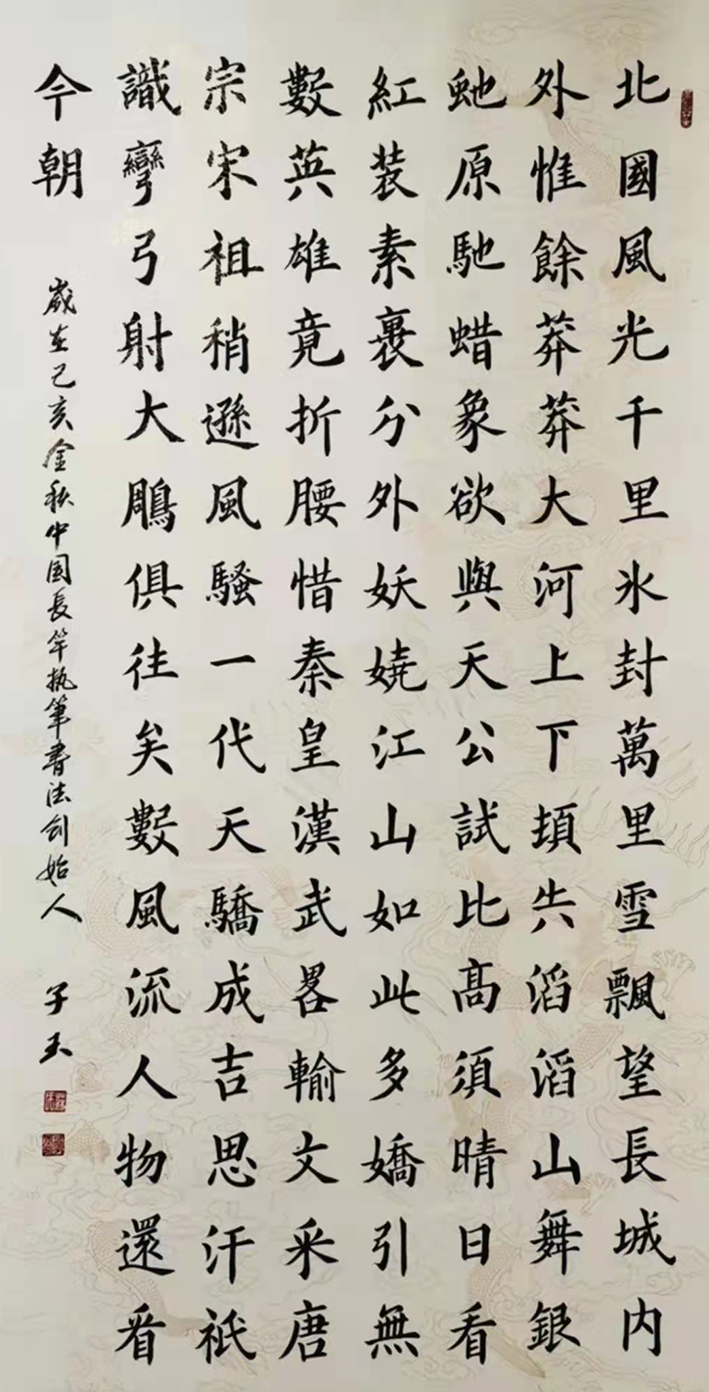 北國風光千里氷封萬里雪飄望長城内
外惟餘莽莽大河上下頃失滔滔山舞銀
虵原馳蜡象欲與天公試比高須晴日看
紅装素裹分外妖嬈江山如此多嬌引無
數英雄竟折腰惜秦皇漢武畧輸文采唐
宗宋祖稍遜風騷一代天驕成吉思汗祇
識彎弓射大鵰俱往矣數風流人物還看
今朝
歲在己亥金秋中国長竿执筆書法创始人 子玉